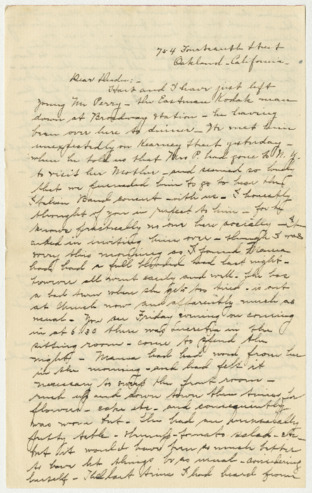 754 Fourteenth Street
Oakland - California -
Dear Shader: -
Hart and I have just left
young Mr Perry - the Eastman Kodak man
down at Broadway Station - he having
been over here to dinner. We met him
unexpectedly on Kearney Street yesterday -
when he told us that Mrs P had gone to N.Y.
to visit her Mother - and seemed so
that we persuaded him to go to hear the
Italian Band concert with us - I
thought of you in respect to him - for he
knows practically no one here socially -
in inviting him over - though I was
sorry this morning as I found Mama
had had a full last night -
however all went easily and well. She has
a bad time when she gets too tired - is out
at Church now and apparently much as
usual - You see Friday evening on coming
in at 6:30 there was in the
sitting room - come to spend the
night - Mama had had word from her
in the morning - and had felt it
necessary to the front room -
rush up and down town three times for
flowers - cake etc - and consequently
was worn out - She had an unusually
pretty table - tomato salad - etc
but it would have been so much better
to have let things be as usual -
herself - The last time I had heard from